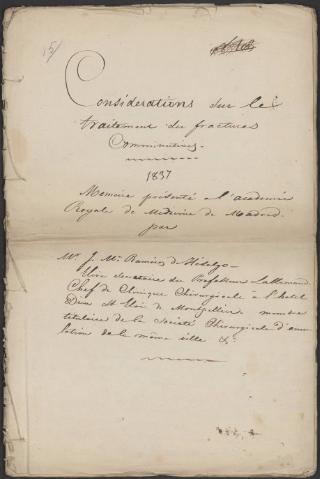 15/
Considerations sur le
traitement des fractures
Comminutives.
1837
Memoire présenté a l'academie
Royale de Medecine de Madrid
par
Mr. J. Mn. Ramirez de Hidalgo
secretaire du Professeur Lallemand
Chef de Clinique Chirurgicale a l'hotel
Dieu St Eloi de Montpellier membre
titulaire de la Société Chirurgicale d'emu
lation de la même ville &c.